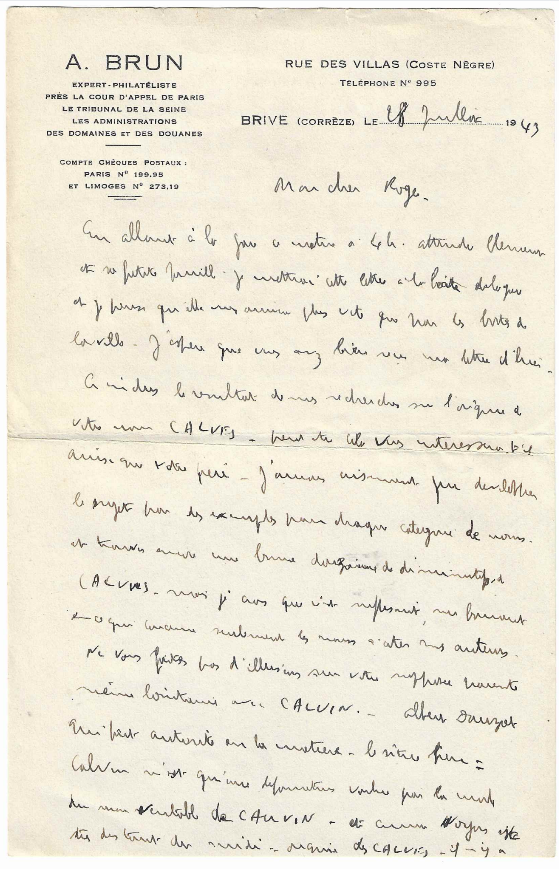 A. BRUN
EXPERT-PHILATÉLISTE
PRÈS LA COUR D'APPEL DE PARIS
LE TRIBUNAL DE LA SEINE
LES ADMINISTRATIONS
DES DOMAINES ET DES DOUANES
COMPTE CHÈQUES POSTAUX :
PARIS N° 199.95
ET LIMOGES N° 273,19
RUE DES VILLAS (COSTE NÈGRE)
TÉLÉPHONE N° 995
BRIVE (CORRÈZE) LE 28 Juillet 1943
Mon cher Roger.
En allant à la gare ce matin à 4 h. attendre Clement
et sa petite famille je mettrai cette lettre à la boite
et je pense qu'elle vous arrivera plus vite que par les boites de
la ville. J'espère que vous avez bien reçu ma lettre d'hier.
Ci inclus le resultat de mes recherches sur l'origine de
votre nom CALVES - peut etre cela vous interessera t'il
ainsi que votre père - J'aurais aisement pu developper
le sujet par des exemples pour chaque categorie de noms.
et trouver encore une bonne douzaine de diminutifs de
CALVES - mais je crois que c'est suffisant,
seulement les noms auteurs.
Ne vous faites pas d'illusions sur votre supposée parenté
même lointaine avec CALVIN. - Albert Dauzat
qui fait autorité en la matière -
Calvin n'est qu'une deformation voulue par la mode
du nom veritable de CAUVIN - et comme
du midi - origine des CALVES - il n'y a